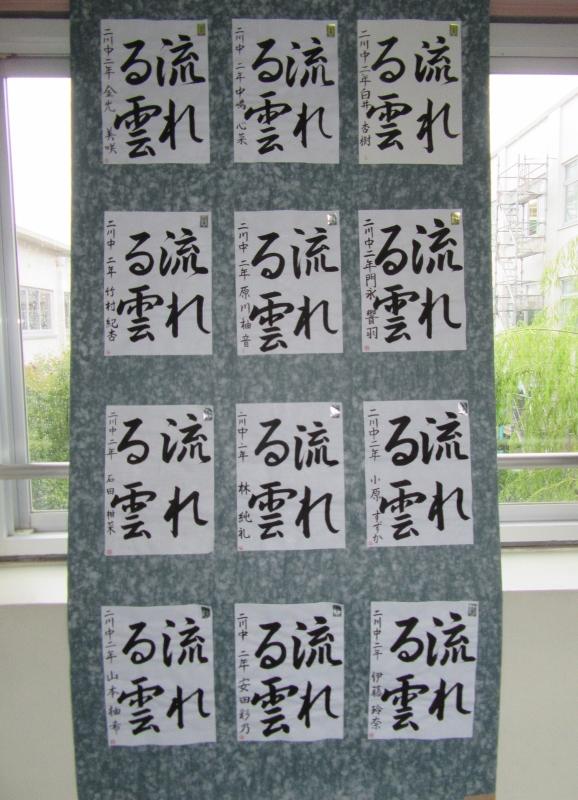 流れ
る雲
二川中二年 白井杏樹
流れ
る雲
二川中 二年 中嶋心菜
流れ
る雲
二川中二年 金光美咲
流れ
る雲
二川中 二年 門永響羽
流れ
る雲
二川中 二年 原川柚音
流れ
る雲
二川中 二年 竹村紀杏
流れ
る雲
二川中二年 小原すずか
流れ
る雲
二川中二年 林純礼
流れ
る雲
二川中二年 石田柑菜
流れ
る雲
二川中二年 伊藤玲奈
流れ
る雲
二川中 二年 安田彩乃
流れ
る雲
二川中二年 山本柚希